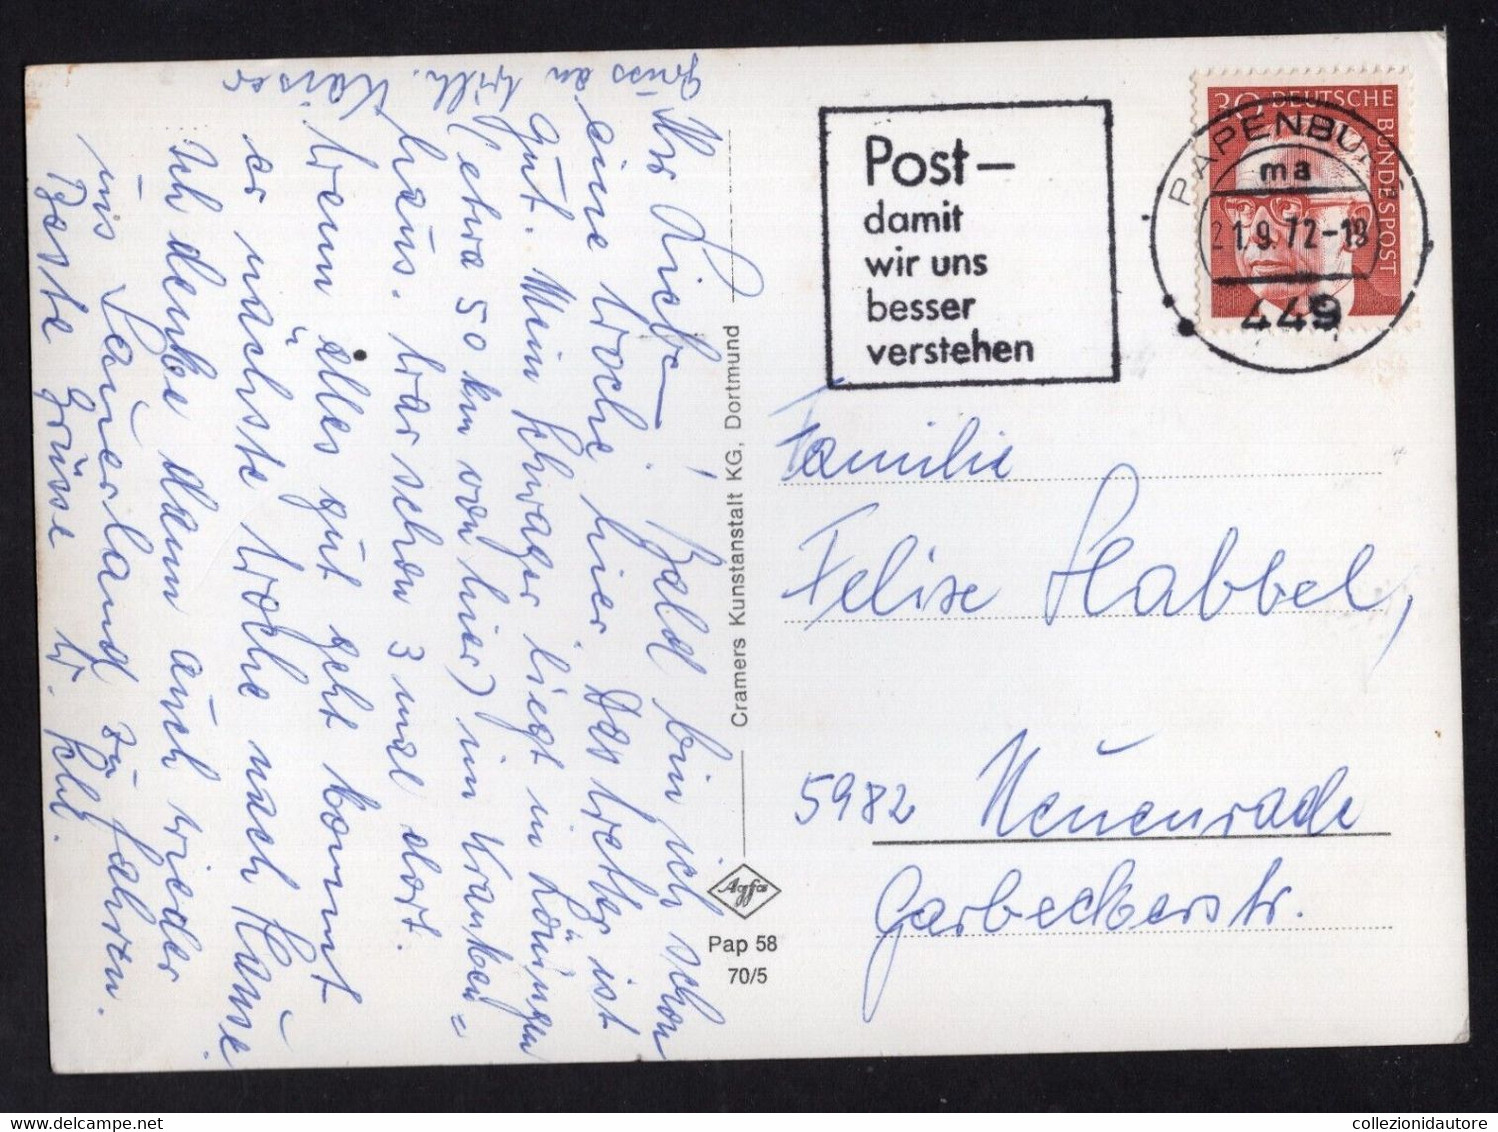 Gruss an Wilh. Kaiser
Ihr Liebe
Bald bin ich schon
eine Woche hier. Das Wetter ist
gut. Mein Schwager liegt in Löningen
(etwa 50 km von hier) im Kranken=
haus. War schon 3 mal dort.
Wenn alles gut geht kommt
er nächste Woche nach Hause.
Ich denke dann auch wieder
ins Sauerland zu fahren.
Beste Grüsse
Cramers Kunstanstalt KG, Dortmund
Agfa
Pap 58
70/5
Post–
damit
wir uns
besser
verstehen
30 DEUTSCHE BUNDESPOST
PAPENBURG
ma
21.9.72-18
449
Familie
Felix Habbel,
5982 Neuenrade
Garbeckerstr.
collezionidautore.com